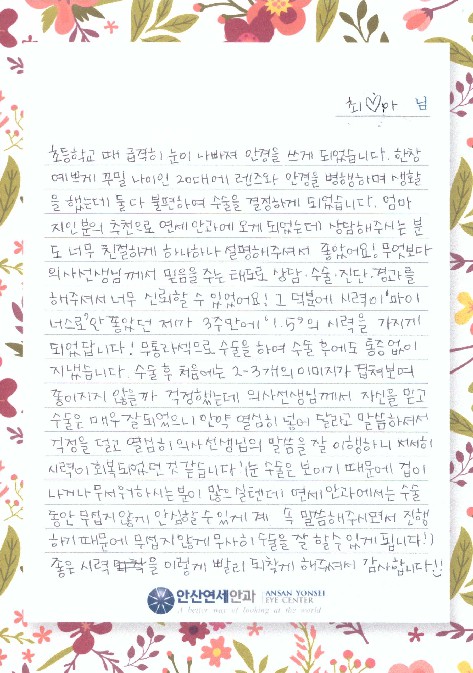 최♡아 님
초등학교 때 급격히 눈이 나빠져 안경을 쓰게 되었습니다. 한창
예쁘게 꾸밀 나이인 20대에 렌즈와 안경을 병행하며 생활
을 했는데 둘 다 불편하여 수술을 결정하게 되었습니다. 엄마
지인분의 추천으로 연세안과에 오게 되었는데 상담해주시는 분
도 너무 친절하게 하나하나 설명해주셔서 좋았어요! 무엇보다
의사선생님께서 믿음을 주는 태도로 상담·수술·진단·결과를
해주셔서 너무 신뢰할 수 있었어요! 그 덕분에 시력이 '마이
너스로' 안 좋았던 제가 3주만에 '1.5'의 시력을 가지게
되었답니다! 무통라섹으로 수술을 하여 수술 후에도 통증없이
지냈습니다. 수술 후 처음에는 2-3개의 이미지가 겹쳐보여
좋아지지 않을까 걱정했는데 의사선생님께서 자신을 믿고
수술은 매우 잘 되었으니 안약 열심히 넣어 달라고 말씀하셔서
걱정을 덜고 열심히 의사선생님의 말씀을 잘 이행하니 서서히
시력이 회복되었던 것 같습니다! 눈 수술은 보이기 때문에 겁이
나거나 무서워하시는 분이 많으실텐데 연세안과에서는 수술
동안 무섭지 않게 안심할 수 있게 계속 말씀해주시면서 진행
하기 때문에 무섭지 않게 무사히 수술을 잘 할 수 있게 됩니다!
좋은 시력을 이렇게 빨리 되찾게 해주셔서 감사합니다!!
안산연세안과 ANSAN YONSEI
EYE CENTER
A better way of looking at the world